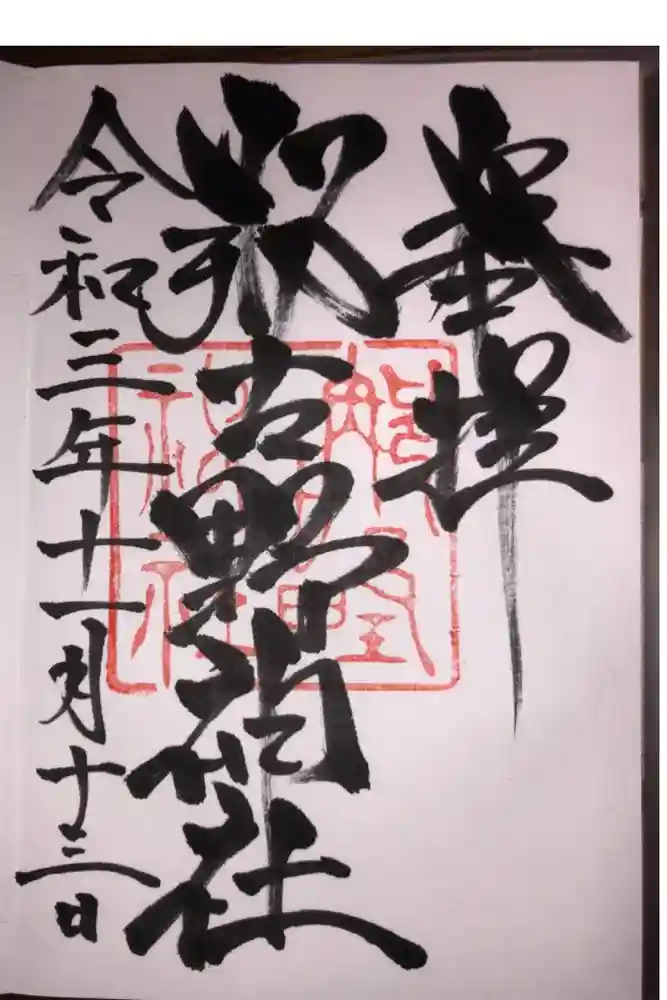 奉拝
古野 社
令和三年十一月十三日
熊野
神社